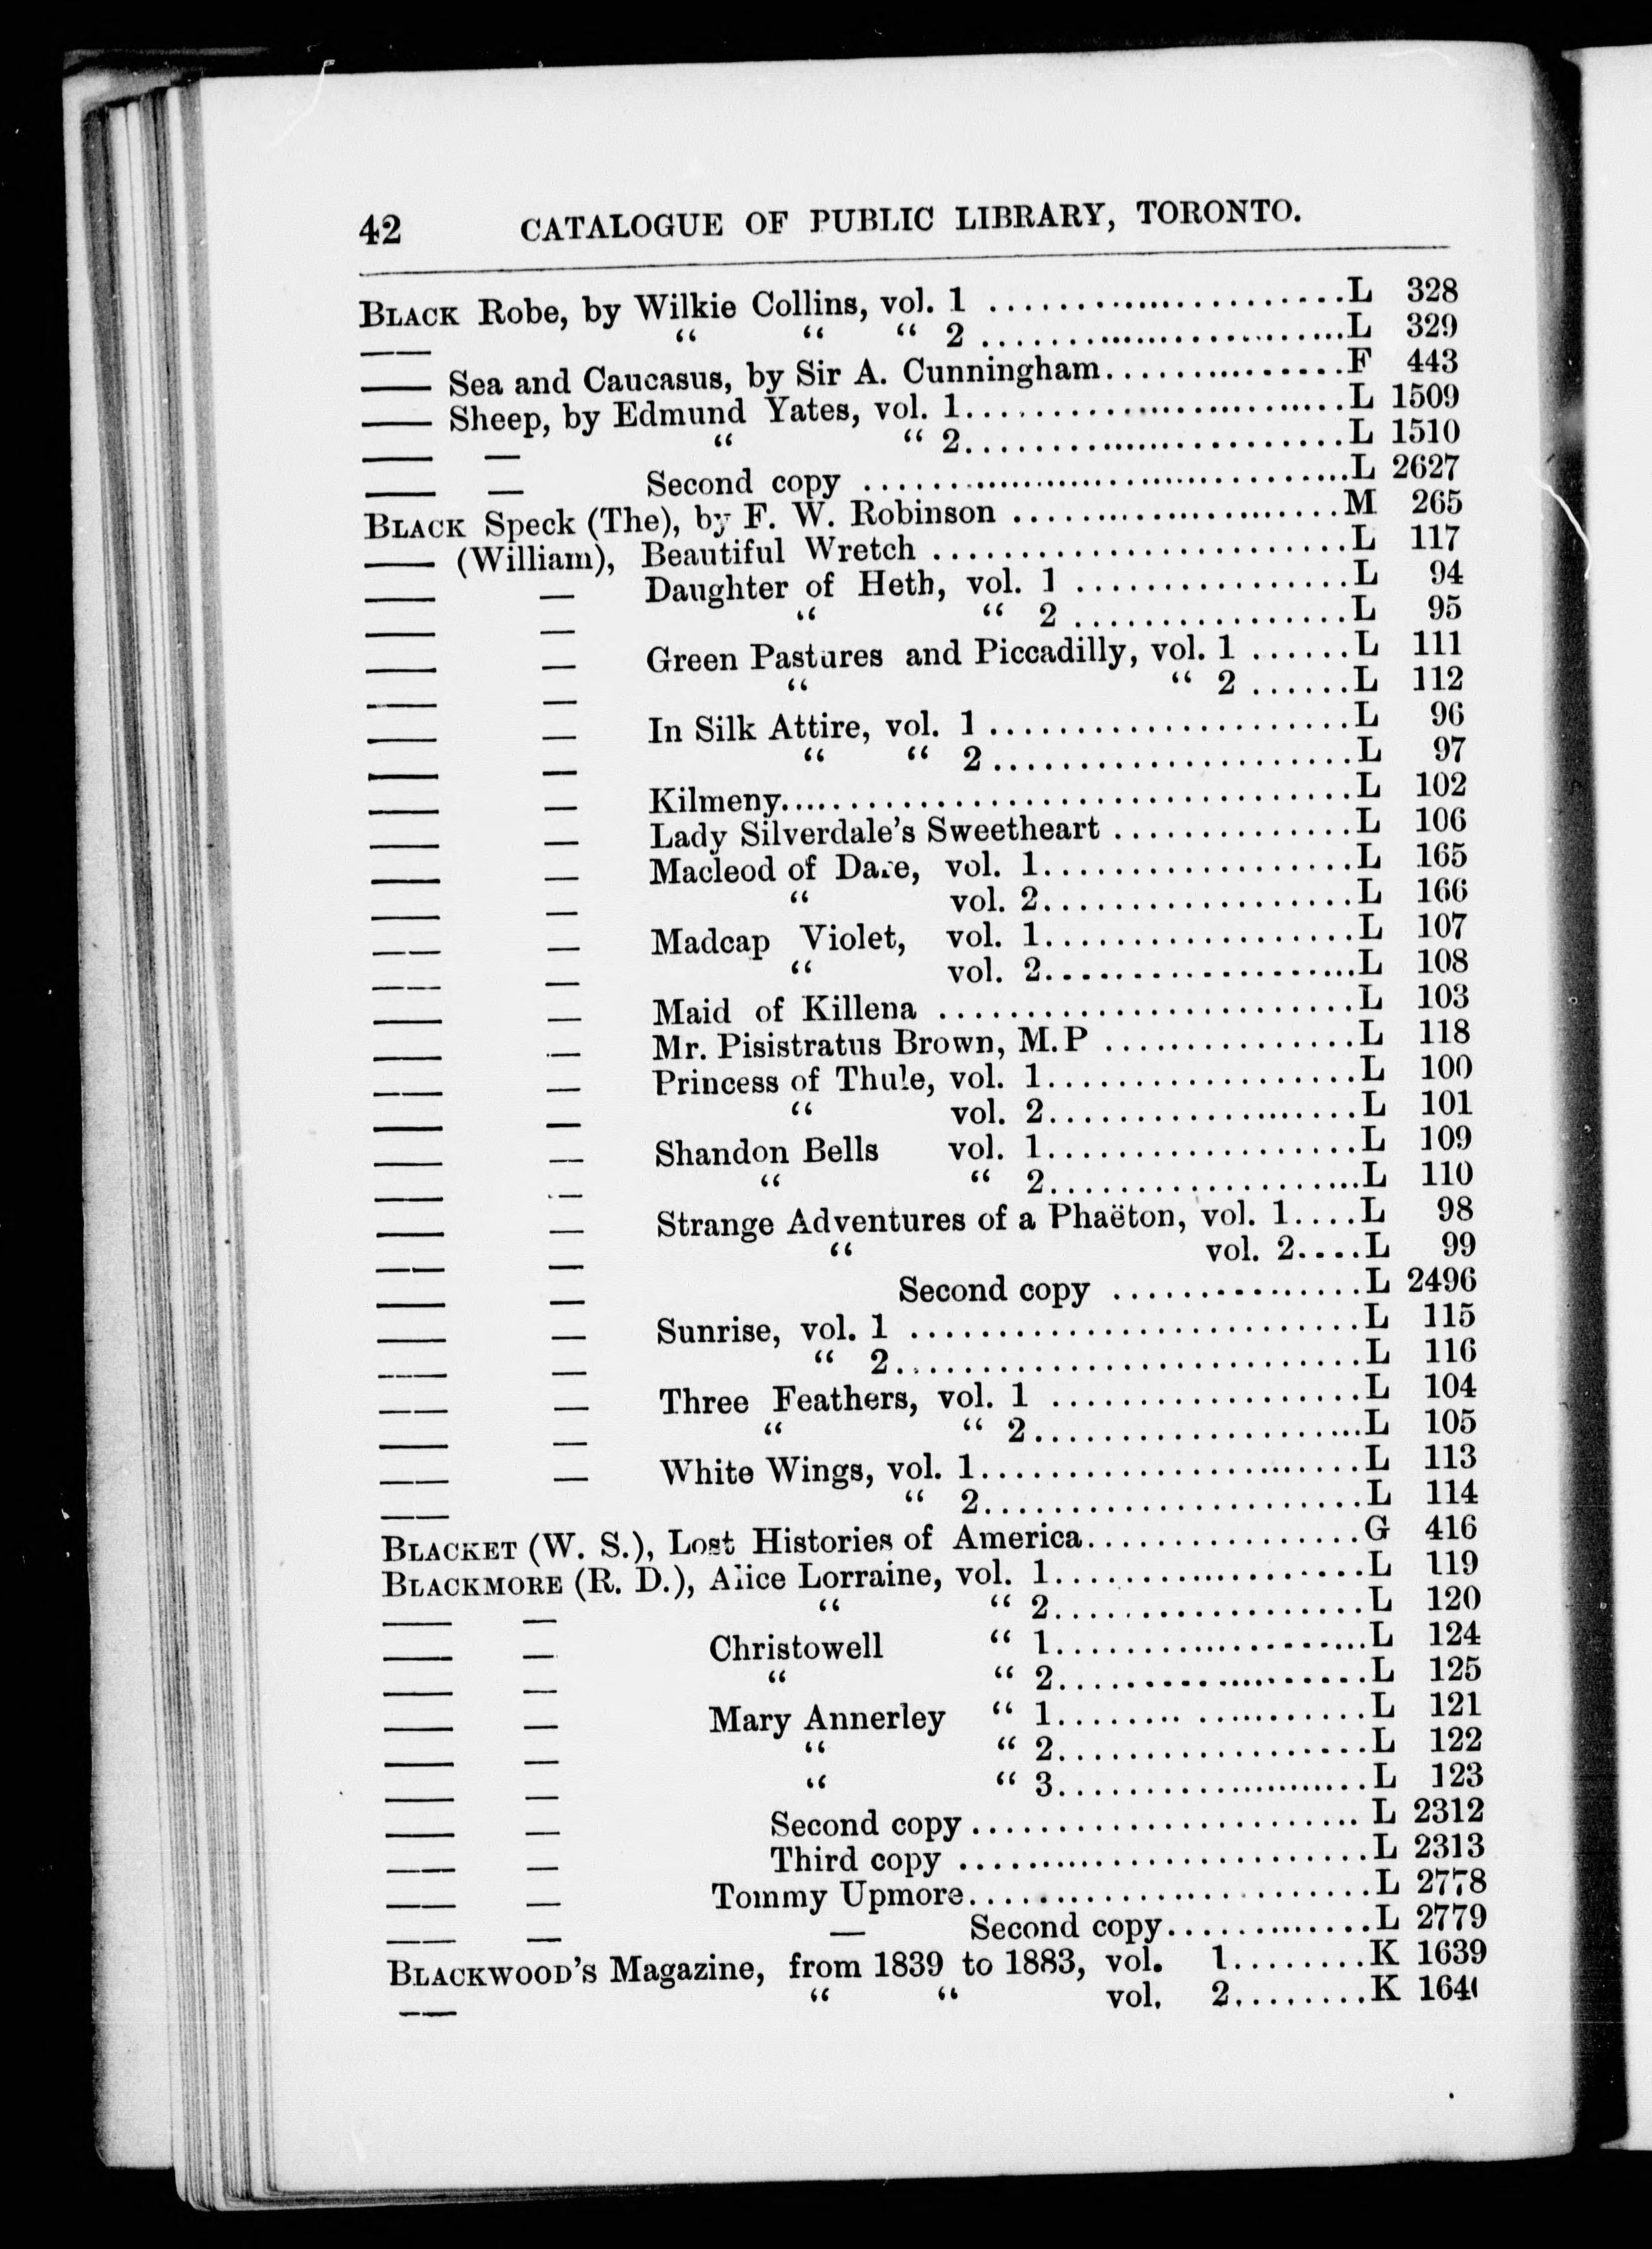 42 CATALOGUE OF PUBLIC LIBRARY, TORONTO.
BLACK Robe, by Wilkie Collins, vol. 1 ........................L 328
—— “ “ “ 2 ........................L 329
—— Sea and Caucasus, by Sir A. Cunningham..............F 443
—— Sheep, by Edmund Yates, vol. 1........................L 1509
—— — “ “ 2........................L 1510
—— — Second copy ..............................L 2627
BLACK Speck (The), by F. W. Robinson ...................M 265
—— (William), Beautiful Wretch ........................L 117
—— — Daughter of Heth, vol. 1 ................L 94
—— — “ “ 2 ................L 95
—— — Green Pastures and Piccadilly, vol. 1 ......L 111
—— — “ “ 2 ......L 112
—— — In Silk Attire, vol. 1 .....................L 96
—— — “ “ 2 .....................L 97
—— — Kilmeny..................................L 102
—— — Lady Silverdale’s Sweetheart ..............L 106
—— — Macleod of Dare, vol. 1..................L 165
—— — “ vol. 2..................L 166
—— — Madcap Violet, vol. 1..................L 107
—— — “ vol. 2..................L 108
—— — Maid of Killena ........................L 103
—— — Mr. Pisistratus Brown, M.P ...............L 118
—— — Princess of Thule, vol. 1..................L 100
—— — “ vol. 2..................L 101
—— — Shandon Bells vol. 1..................L 109
—— — “ “ 2..................L 110
—— — Strange Adventures of a Phaëton, vol. 1....L 98
—— — “ vol. 2....L 99
—— — Second copy ...............L 2496
—— — Sunrise, vol. 1 ..........................L 115
—— — “ 2...........................L 116
—— — Three Feathers, vol. 1 ..................L 104
—— — “ “ 2...................L 105
—— — White Wings, vol. 1......................L 113
—— “ 2......................L 114
BLACKET (W. S.), Lost Histories of America................G 416
BLACKMORE (R. D.), Alice Lorraine, vol. 1..................L 119
—— — “ “ 2..................L 120
—— — Christowell “ 1..................L 124
—— — “ “ 2..................L 125
—— — Mary Annerley “ 1..................L 121
—— — “ “ 2..................L 122
—— — “ “ 3..................L 123
—— — Second copy...................... L 2312
—— — Third copy .......................L 2313
—— — Tommy Upmore.......................L 2778
—— — — Second copy............L 2779
BLACKWOOD’S Magazine, from 1839 to 1883, vol. 1........K 1639
—— “ “ vol. 2........K 164